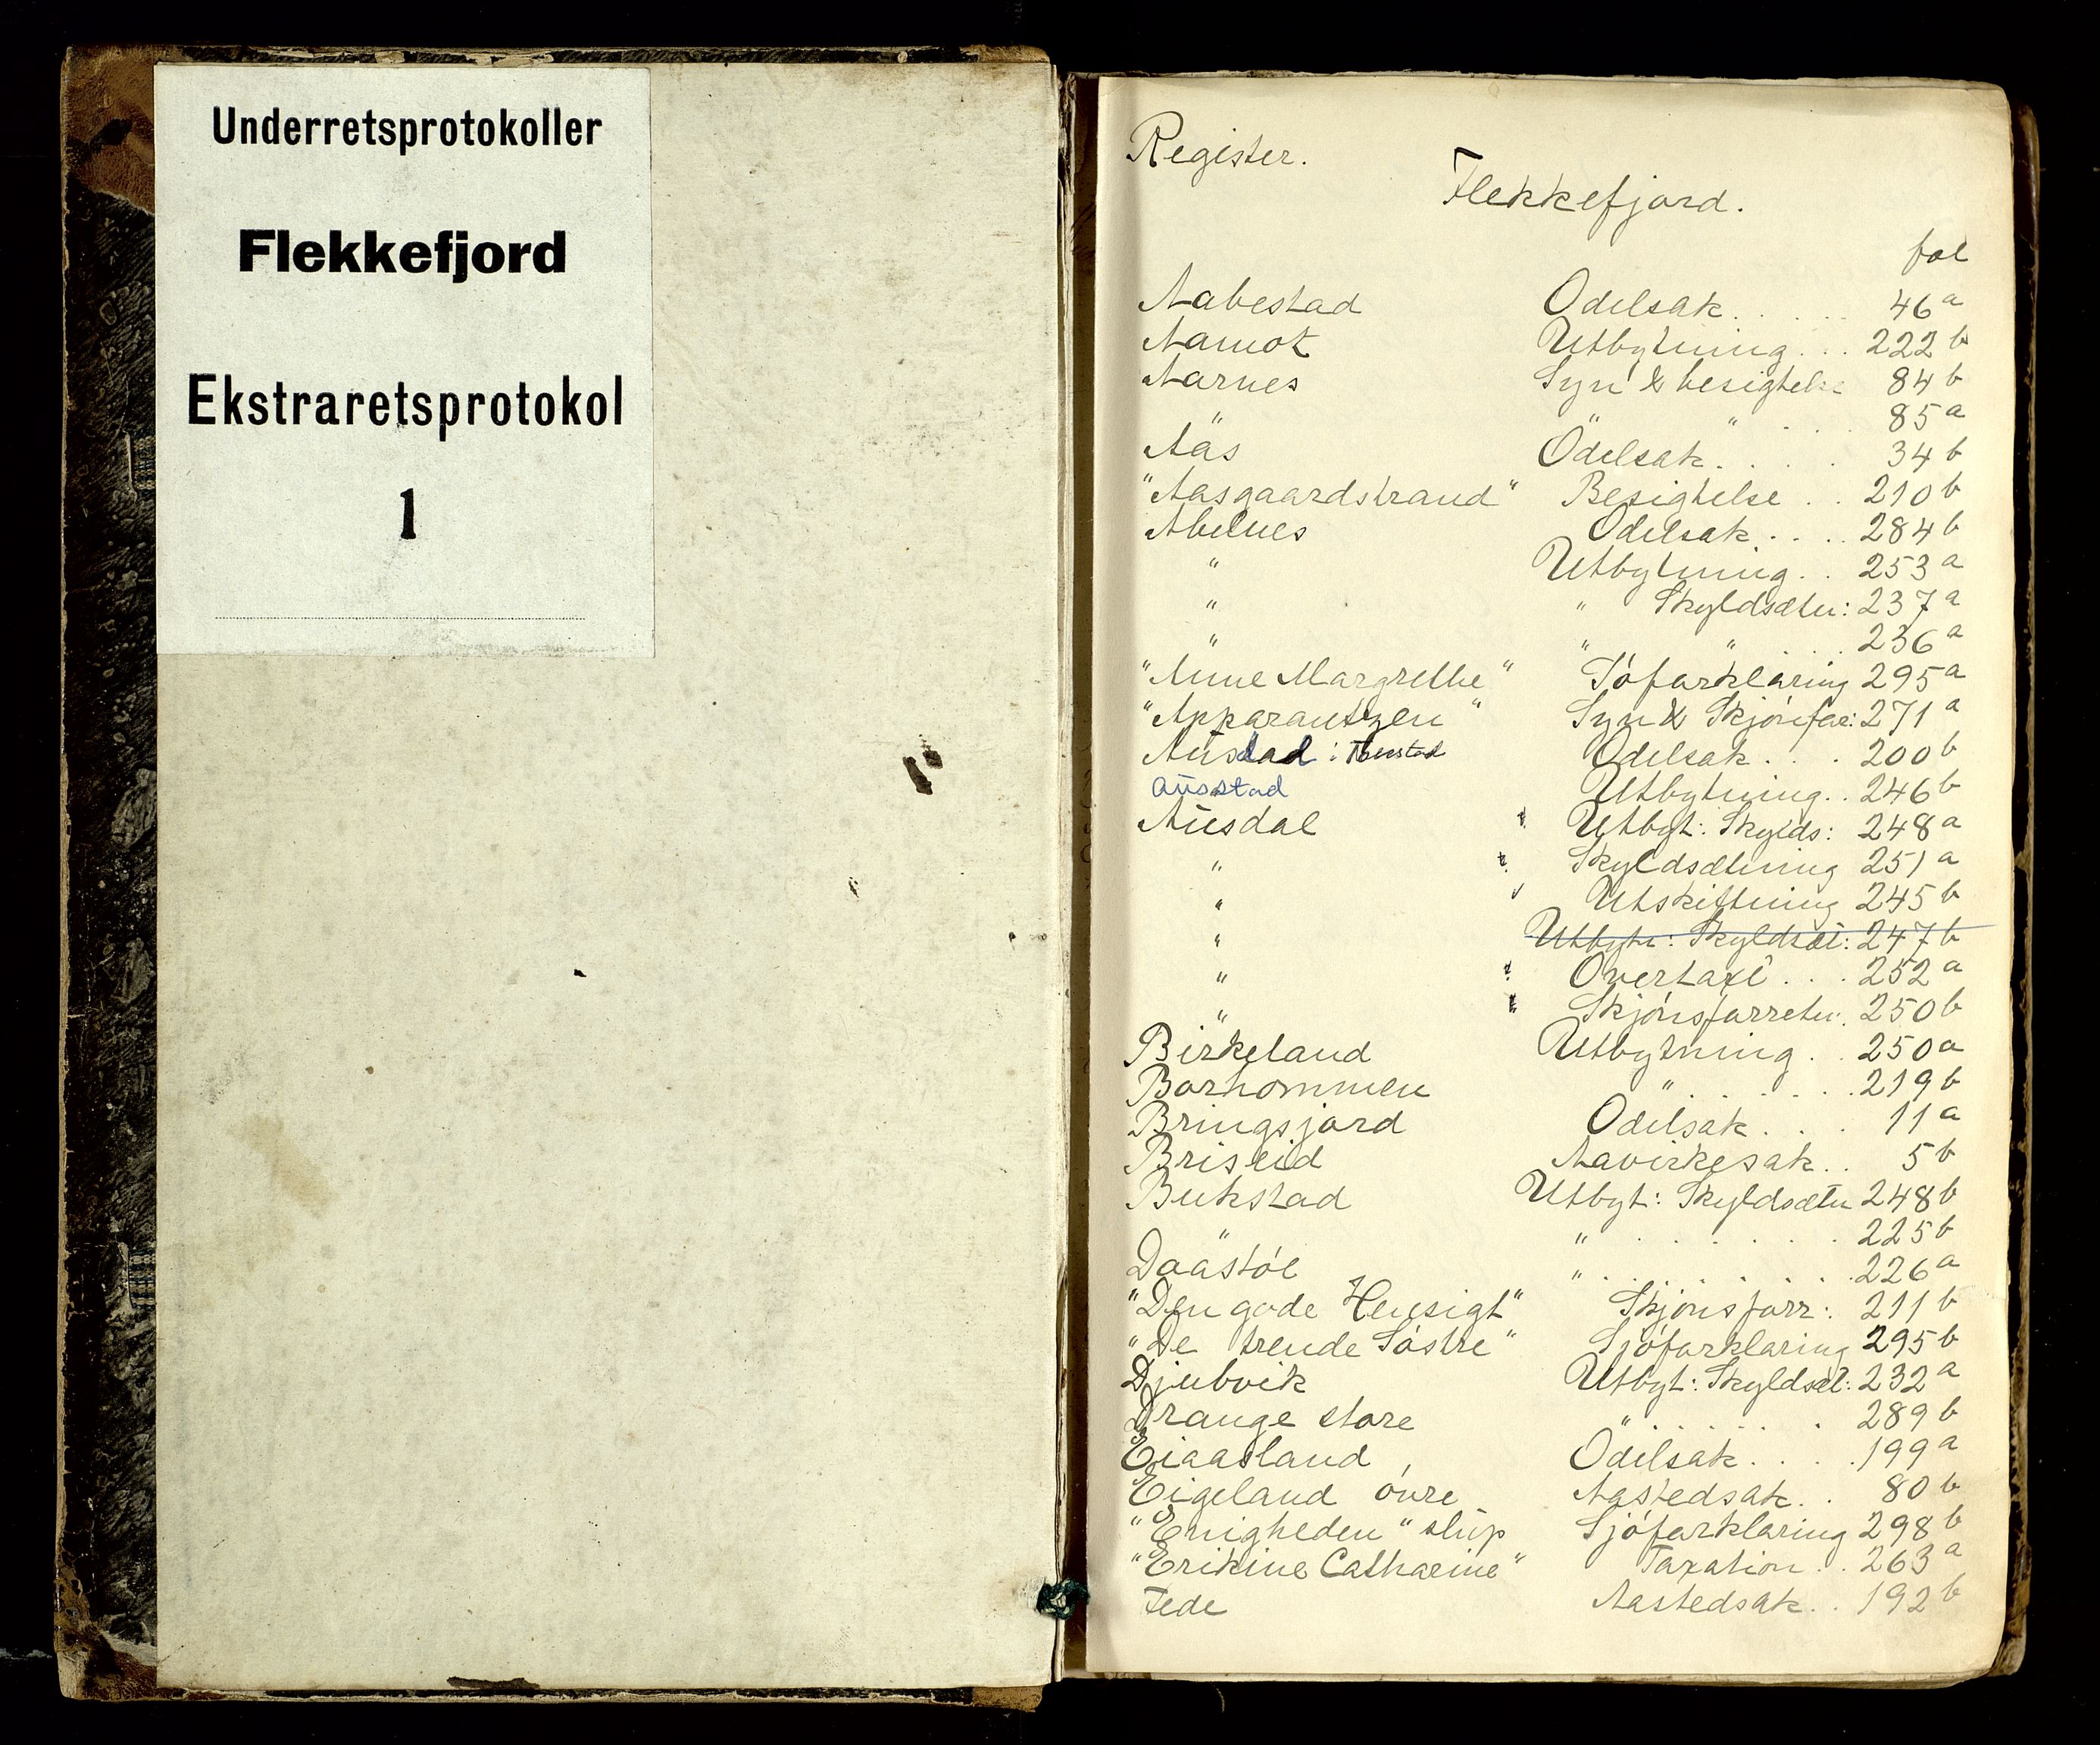 Underretsprotokoller
Flekkefjord
Ekstraretsprotokol
1
Register.
Flekkefjord.
fol
Aabestad Odelsak. . . . . 46 a
Aamot Utbytning. . . 222 b
Aarnes Syn & besigtelse 84 b
" " . . . 85 a
Aas Odelsak. . . . 34 b
"Aasgaardstrand" Besigtelse . . 210 b
Abelnes Odelsak. . . . 284 b
" Utbytning. . 253 a
" " Skyldsætn: 237 a
" " " . . . 236 a
"Anne Margrethe" Söfarklaring 295 a
"Apparantzen" Syn & Skjönfor: 271 a
Austad : Odelsak. . . 200 b
Ausstad Utbytning. . 246 b
Ausdal Utbyt: Skylds: 248 a
" Skyldsætning 251 a
" Utskiftning 245 b
" Utbytn: Skyldsæt: 247 b
" Overtaxt . . . 252 a
" Skjönsforretn: 250 b
Birkeland Utbytning. . . 250 a
Borhommen " . . . . . . 219 b
Bringsjord Odelsak. . . . 11 a
Briseid Aavirkesak. . 5 b
Bukstad Utbyt: Skyldsætn 248 b
" . . . . . . 225 b
Daastöl " . . . . . . . 226 a
"Den gode Hensigt" Skjönsforr: 211 b
"De trende Söstre" Sjöfarklaring 295 b
Djubvik Utbyt: Skyldsæt: 232 a
Drange store " . . . . . . 289 b
Eiaasland Odelsak. . . . . 199 a
Eigeland övre Aastedsak. . 80 b
"Enigheden" slup Sjöfarklaring 298 b
"Erikine Catharine" Taxation . . 263 a
Fede Aastedsak. . 192 b